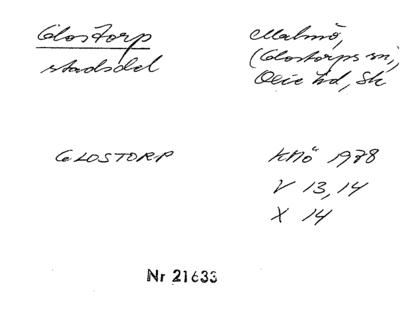 Glostorp
stadsdel
Malmö,
(Glostorps sn,
Oxie hd, Sk
GLOSTORP
KMÖ 1978
V 13, 14
X 14
Nr 21633